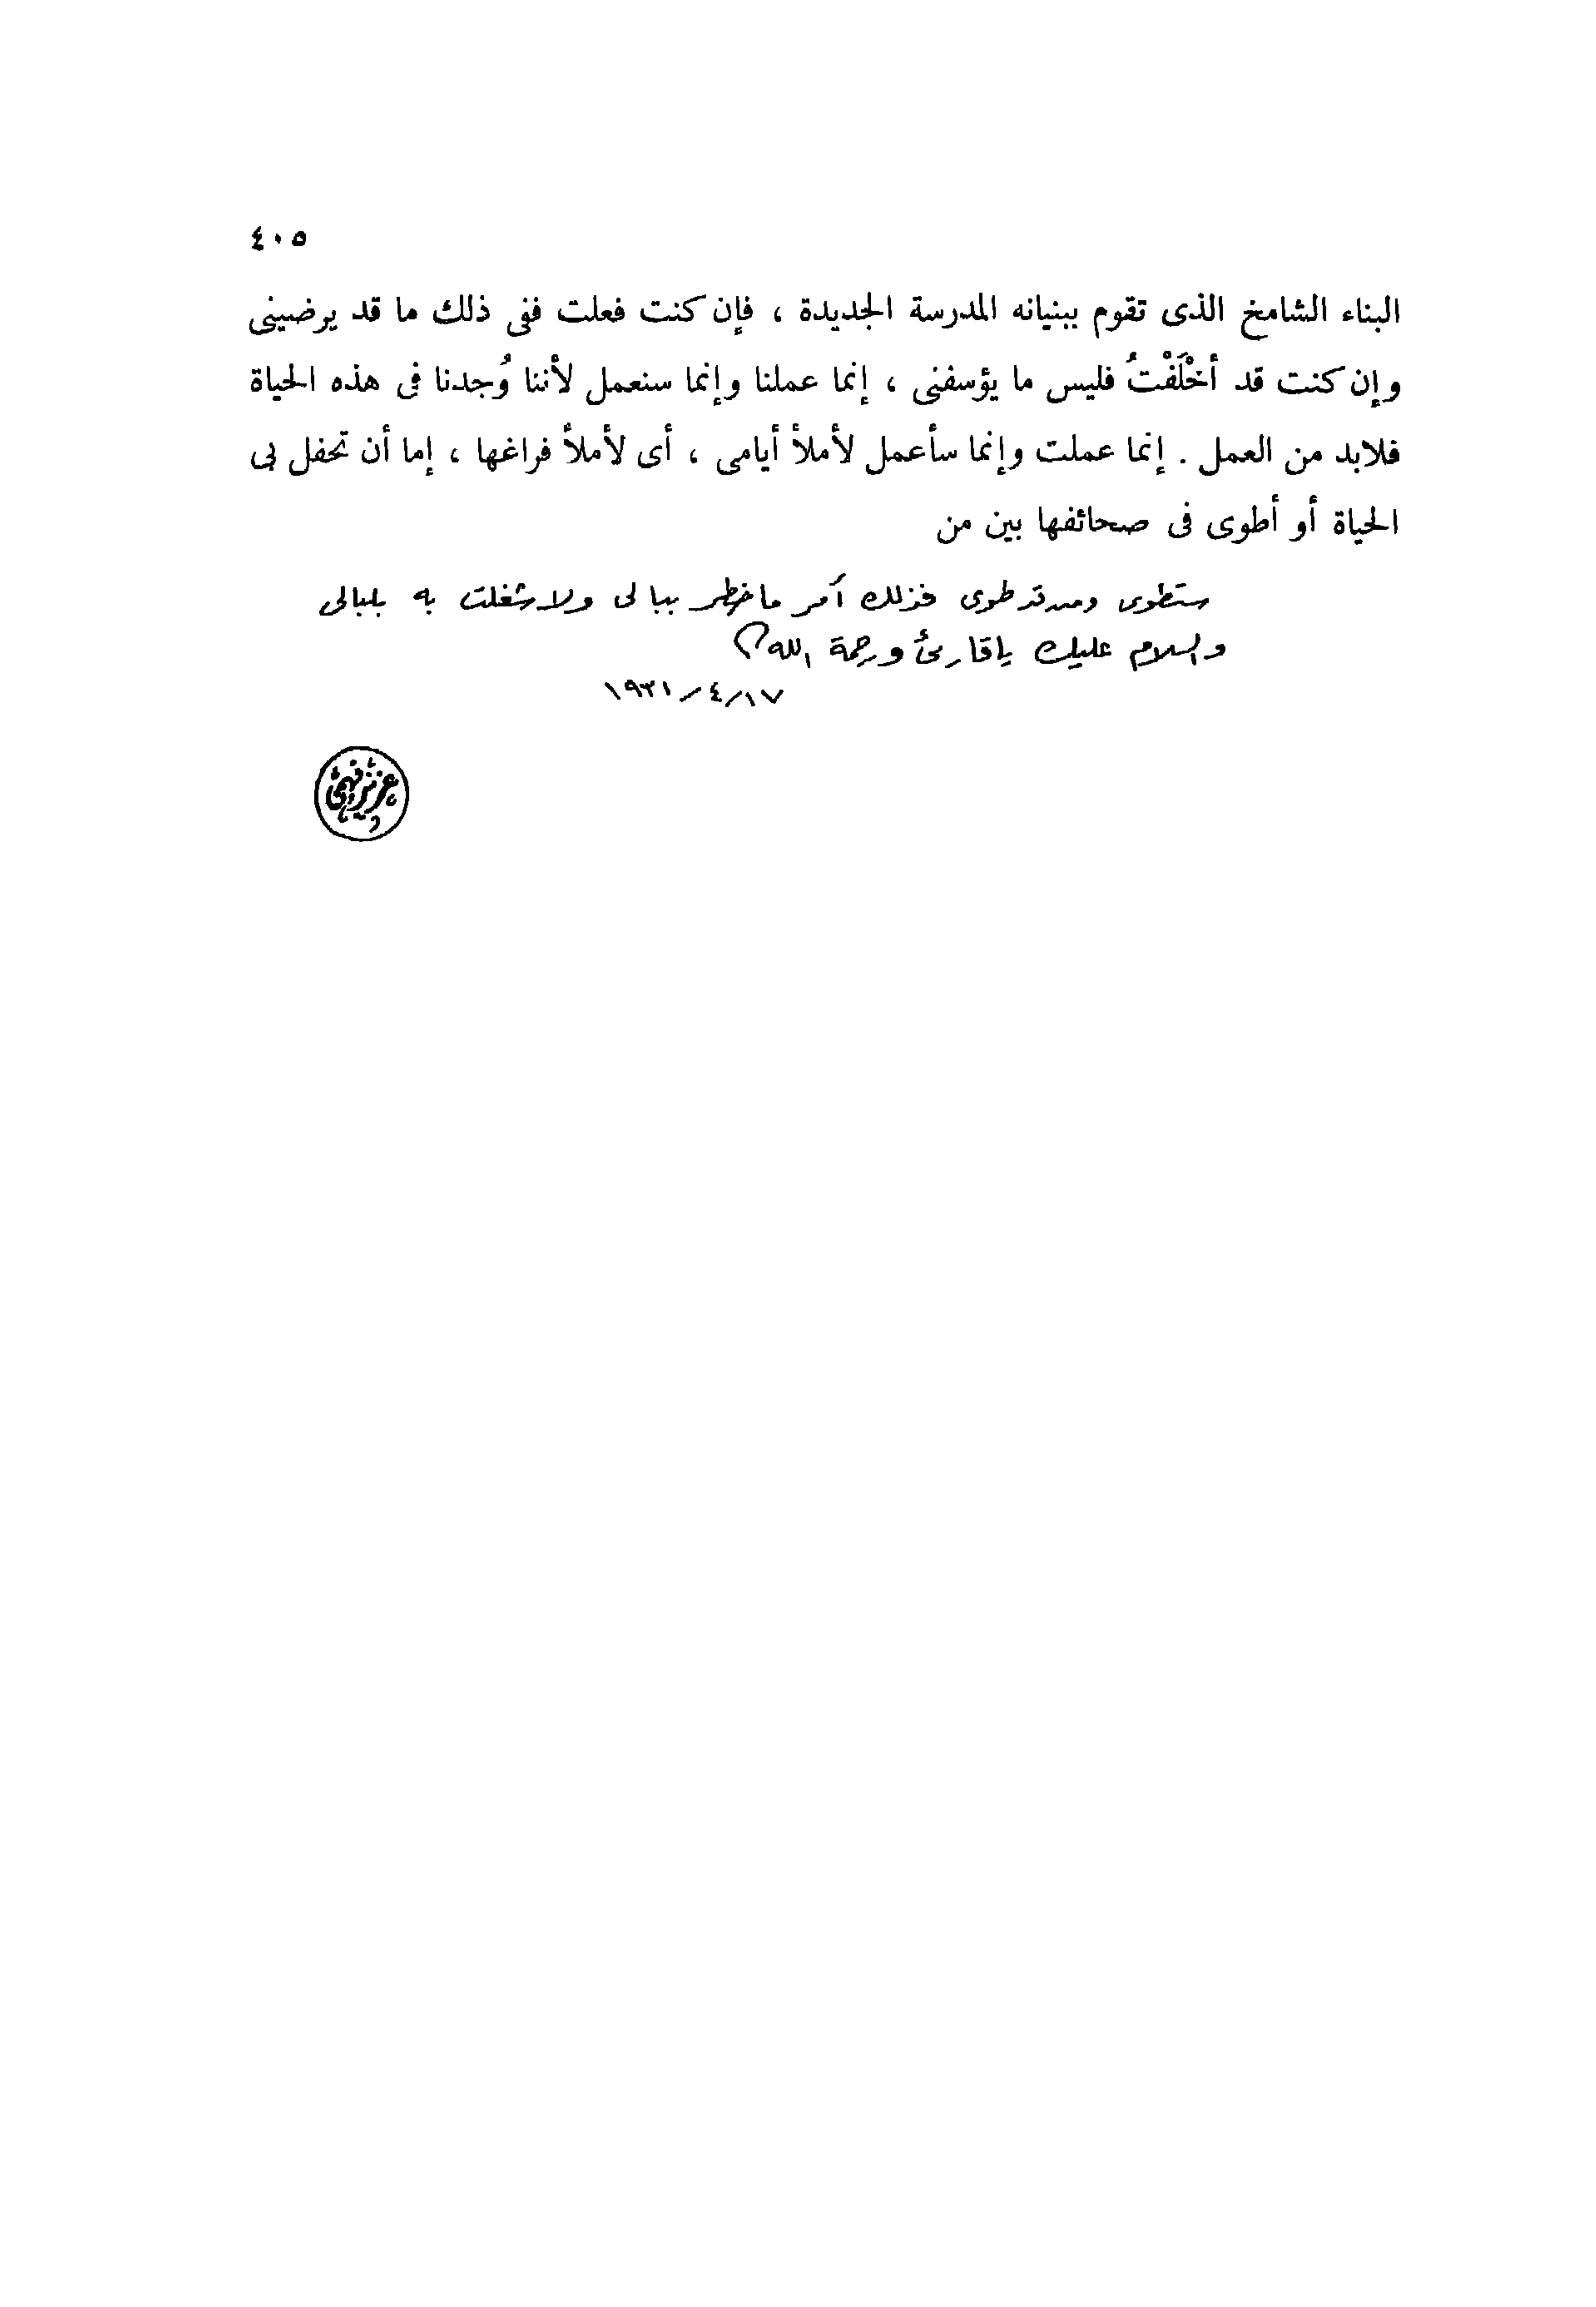 ٤٠٥
البناء الشامخ الذى تقوم ببنيانه المدرسة الجديدة ، فإن كنت فعلت ففى ذلك ما قد يرضينى
وإن كنت قد أخْلَفْتُ فليس ما يؤسفنى ، إنما عملنا وإنما سنعمل لأننا وُجدنا فى هذه الحياة
فلابد من العمل . إنما عملت وإنما سأعمل لأملأ أيامى ، أى لأملأ فراغها ، إما أن تحفل بى
الحياة أو أطوى فى صحائفها بين من
ستطوى ومن قد طوى فذلك أمر ما خطر ببالى ولا شغلت به بلبالى
والسلام عليك يا قارئ ورحمة الله
١٧/٤/١٩٣١
عزيز فهمى